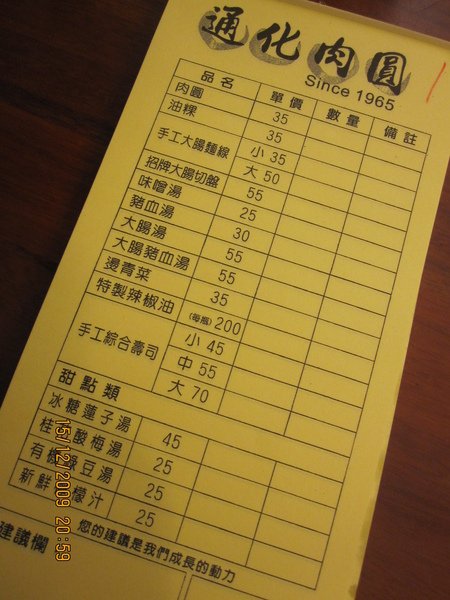 通化肉圓
Since 1965
品名 單價 數量 備註
肉圓 35
油粿 35
手工大腸麵線 小 35
大 50
招牌大腸切盤 55
味噌湯 25
豬血湯 30
大腸湯 55
大腸豬血湯 55
燙青菜 35
特製辣椒油 (每瓶)200
手工綜合壽司 小 45
中 55
大 70
甜點類
冰糖蓮子湯 45
桂 酸梅湯 25
有機綠豆湯 25
新鮮 檬汁 25
您的建議是我們成長的動力
建議欄
15/12/2009 20:59